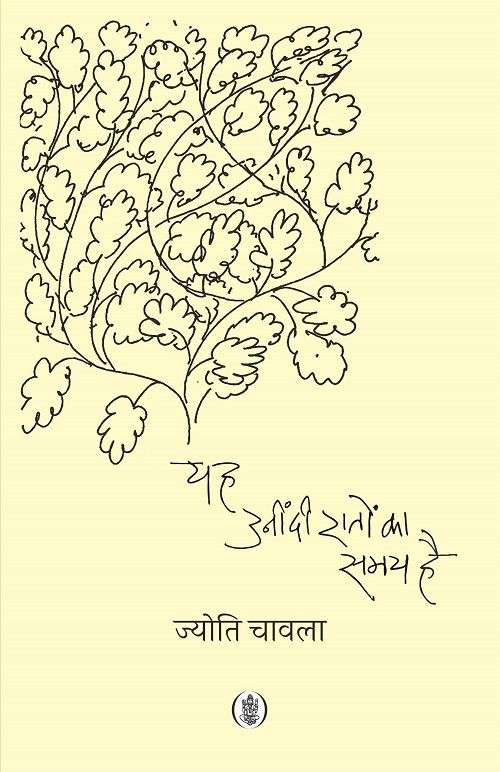 यह
उनींदी रातों का
समय है
ज्योति चावला